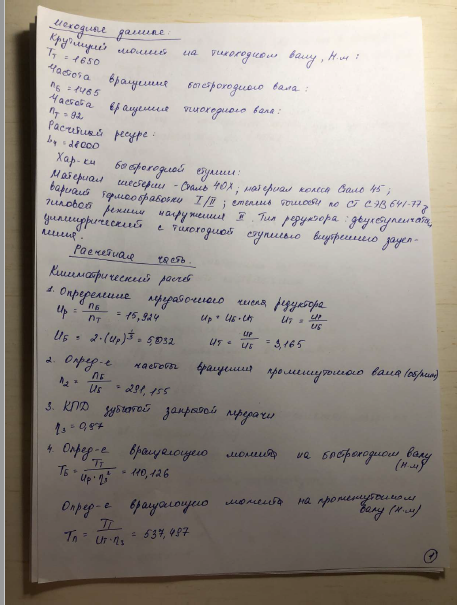 Исходные данные:
Крутящий момент на тихоходном валу, Н.м:
Tт = 1650
Частота вращения быстроходного вала:
nБ = 1465
Частота вращения тихоходного вала:
nт = 92
Расчетный ресурс:
= 28000
Хар-ки быстроходной ступени:
Материал шестерни - Сталь 40Х; материал колеса Сталь 45;
вариант термообработки I/II; степень точности по СТ СЭВ 641-77
типовой режим нагружения II. Тип редуктора: двухступенчатый
цилиндрический с тихоходной ступенью внутреннего зацеп-
ления.
Расчетная часть.
Кинематический расчет
1. Определение передаточного числа редуктора
Uр = nБ/nт = 15,924 Uр = UБ·Uт Uт = Uр/UБ
UБ = 2·(Uр)^1/3 = 5,032 Uт = Uр/UБ = 3,165
2. Опред-е частоты вращения промежуточного вала (об/мин)
n2 = nБ/UБ = 291,155
3. КПД зубчатой закрытой передачи
η3 = 0,97
4. Опред-е вращающего момента на быстроходном валу
(Н.м)
TБ = Tт/Uр·η3² = 110,126
Опред-е вращающего момента на промежуточном
валу (Н.м)
Tп = Tт/Uт·η3 = 537,497
1